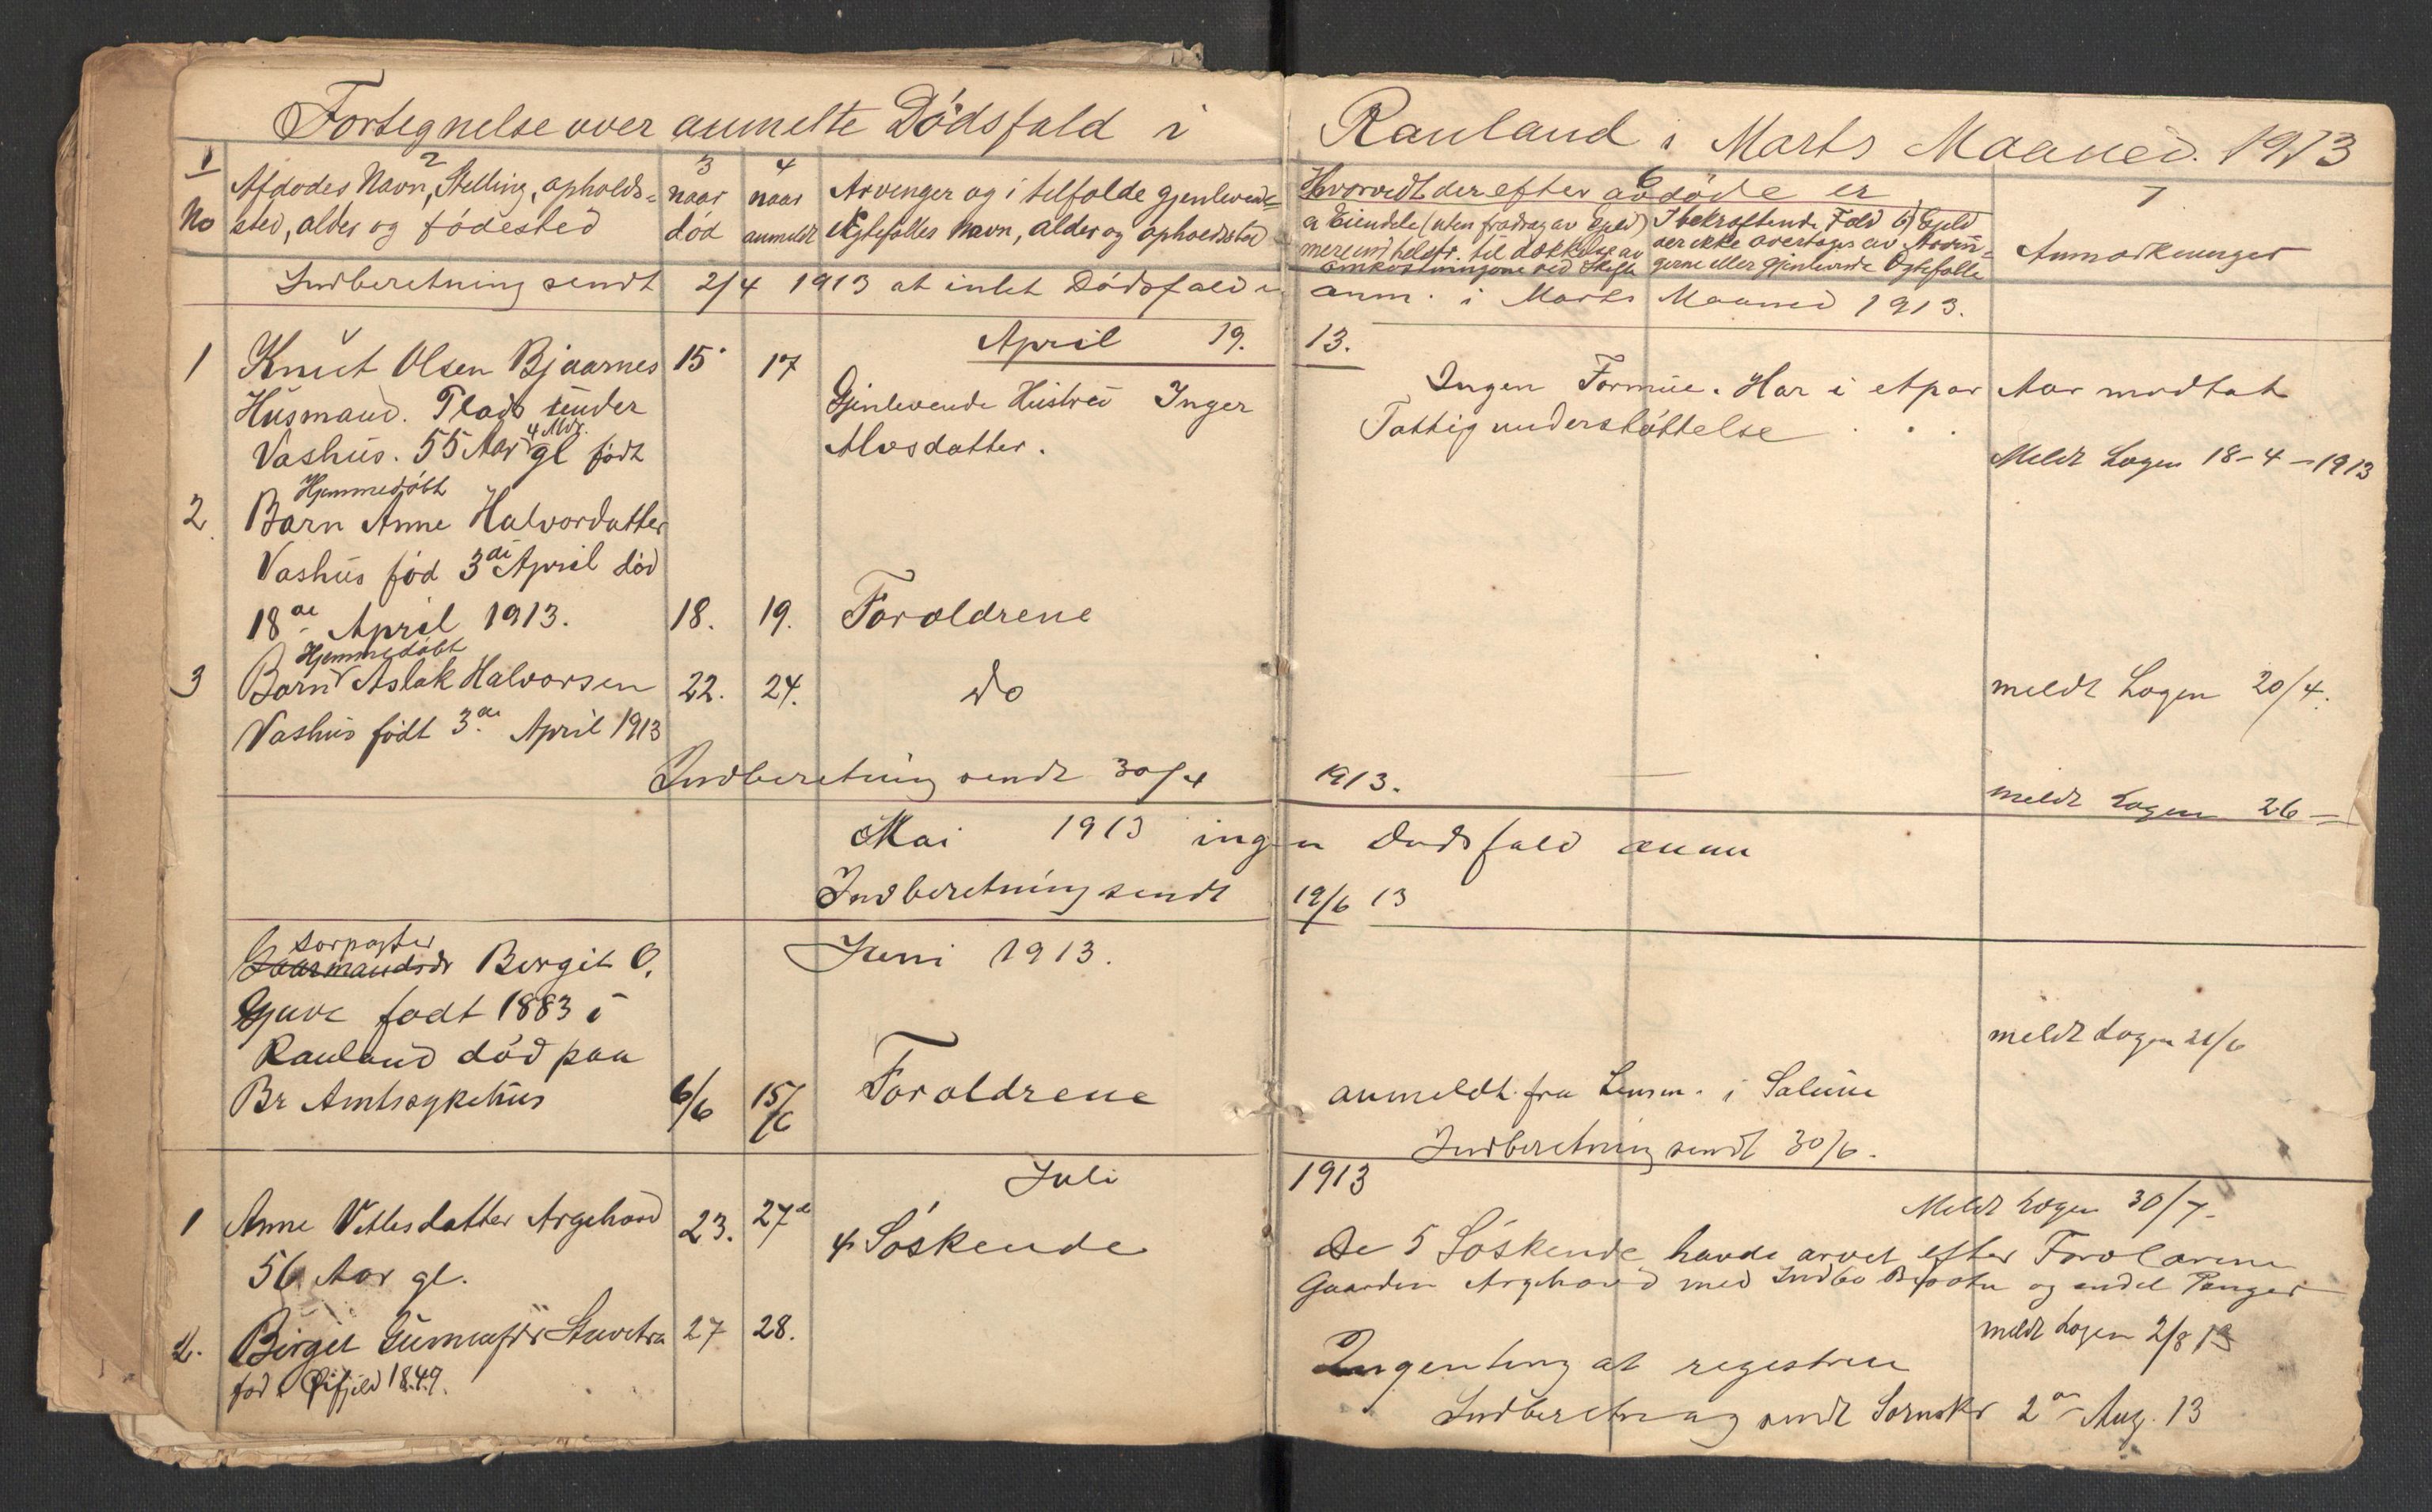 Fortegnelse over anmelte Dødsfald i Rauland i Marts Maaned. 1913
1 No
2 Afdødes Navn, Stelling, opholds-
sted, alder og fødested
3 naar
død
4 naar
anmeldt
Arvinger og i tilfælde gjenlevende
Egtefælles Navn, alder og opholdssted
6
Hvorvidt der efter avdøde er
a Eiendele (uten fradrag av Gjeld)
mere end helstr. til dækkelse av
omkostningene ved Skifte
I bekræftende Fald b) Gjeld
der ikke overtages av Arvin-
gerne eller gjenlevende Egtefælle
7
Anmærkninger
Indberetning sendt 2/4 1913 at intet Dødsfald er anm. i Marts Maaned 1913.
April 19. 13.
1 Knut Olsen Bjaarnes 15 17
Husmand. Plads under
Vashus. 55 Aar 4 Mdr. gl født
Gjenlevende Hustru Inger
Alvsdatter.
Ingen Formue. Har i et par Aar modtat
Fattigunderstøttelse . . .
Meldt Lægen 18-4-1913
Hjemmedøbt
2 Barn Anne Halvordatter
Vashus fød 3de April død
18de April 1913. 18. 19. Forældrene
Hjemmedøbt
3 Barn Aslak Halvorsen 22. 24. do
meldt Lægen 20/4.
Vashus født 3de April 1913
Indberetning sendt 30/4 1913.
meldt Lægen 26 –
Mai 1913 ingen Dødsfald anm
Indberetning sendt 12/6 13
Juni 1913.
Gaarmandsdr Bergit O.
Gjuve født 1883 i
Rauland død paa
Br Amtssykehus 6/6 15/6 Forældrene
meldt Lægen 21/6
anmeldt fra Lensm. i Salume
Indberetning sendt 30/6.
Juli 1913
Meldt Lægen 30/7-
1 Anne Vetlesdatter Argehovd 23. 27de 4 Søskende
56 Aar gl.
De 5 Søskende havde arvet efter Forældrene
Gaarden Argehovd med Indbo og endel Penger
2. Birgit Gunnufsdr 27 28.
fød i Øifjeld 1849.
meldt Lægen 2/8 13
Ingenting at registrere
Indberetning sendt Sornskr 2de Aug. 13